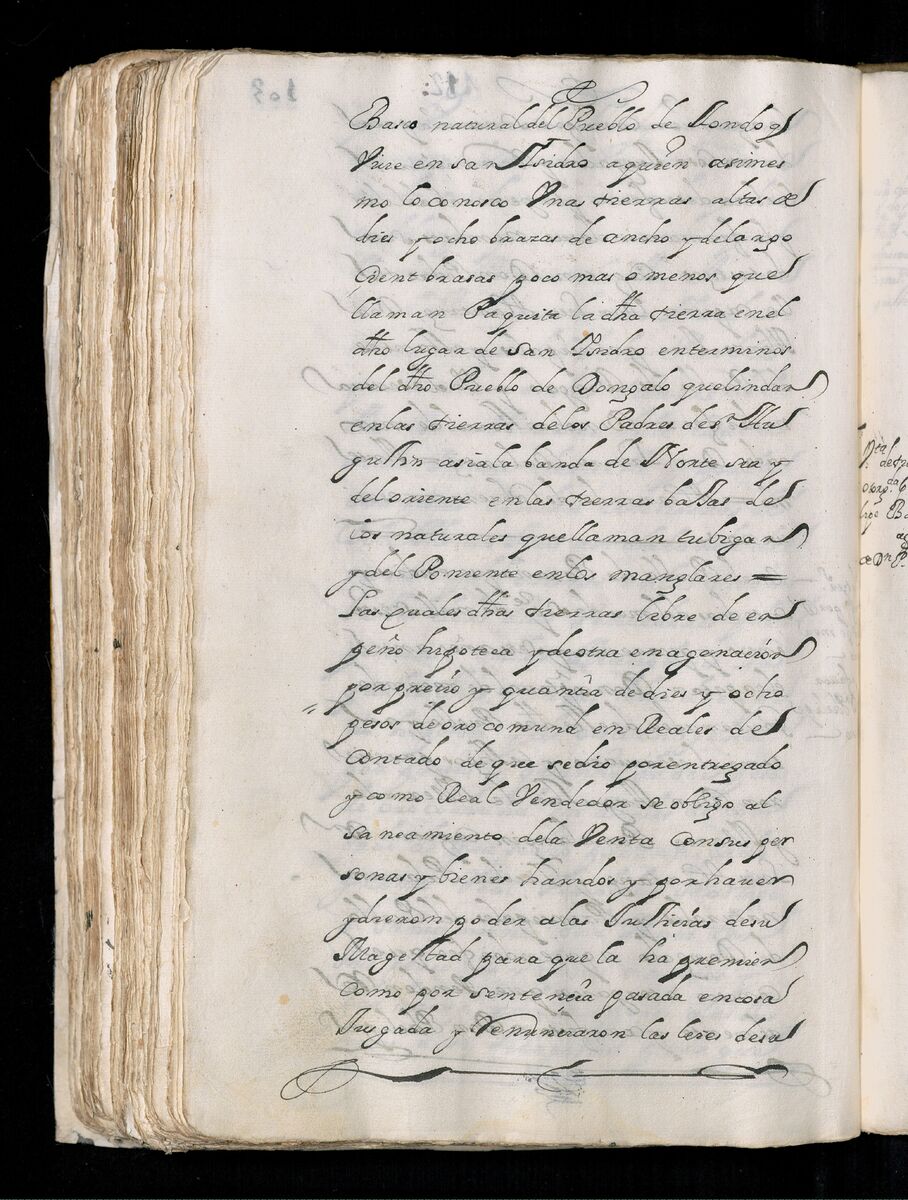 Basco natural del Pueblo de Tondo q
Viue en san Isidro a quien asimes
mo lo conosco Vnas tierras altas de
dies y ocho brazas de ancho y de largo
Cient brasas poco mas o menos que
llaman Paquita la dha tierra en el
dho lugar de san Ysidro en terminos
del dho Pueblo de Dongalo que lindan
en las tierras de los Padres de sr Au
gustin asia la banda de Norte sur y
del oriente en las tierras baxas de
los naturales que llaman tubigan
y del Poniente en los manglares =
Las quales dhas tierras libre de en
peño hipoteca y de otra enagenación
por precio y quantia de dies y ocho
pesos de oro comund en Reales de
Contado de que se dio por entregado
y como Real Vendedor se obligo al
saneamiento de la Venta Con sus per
sonas y bienes hauidos y por hauer
y dieron poder a las Justicias de su
Magestad para que la hapremien
Como por sentencia pasada en cosa
Jusgada y Renunciaron las leies de su